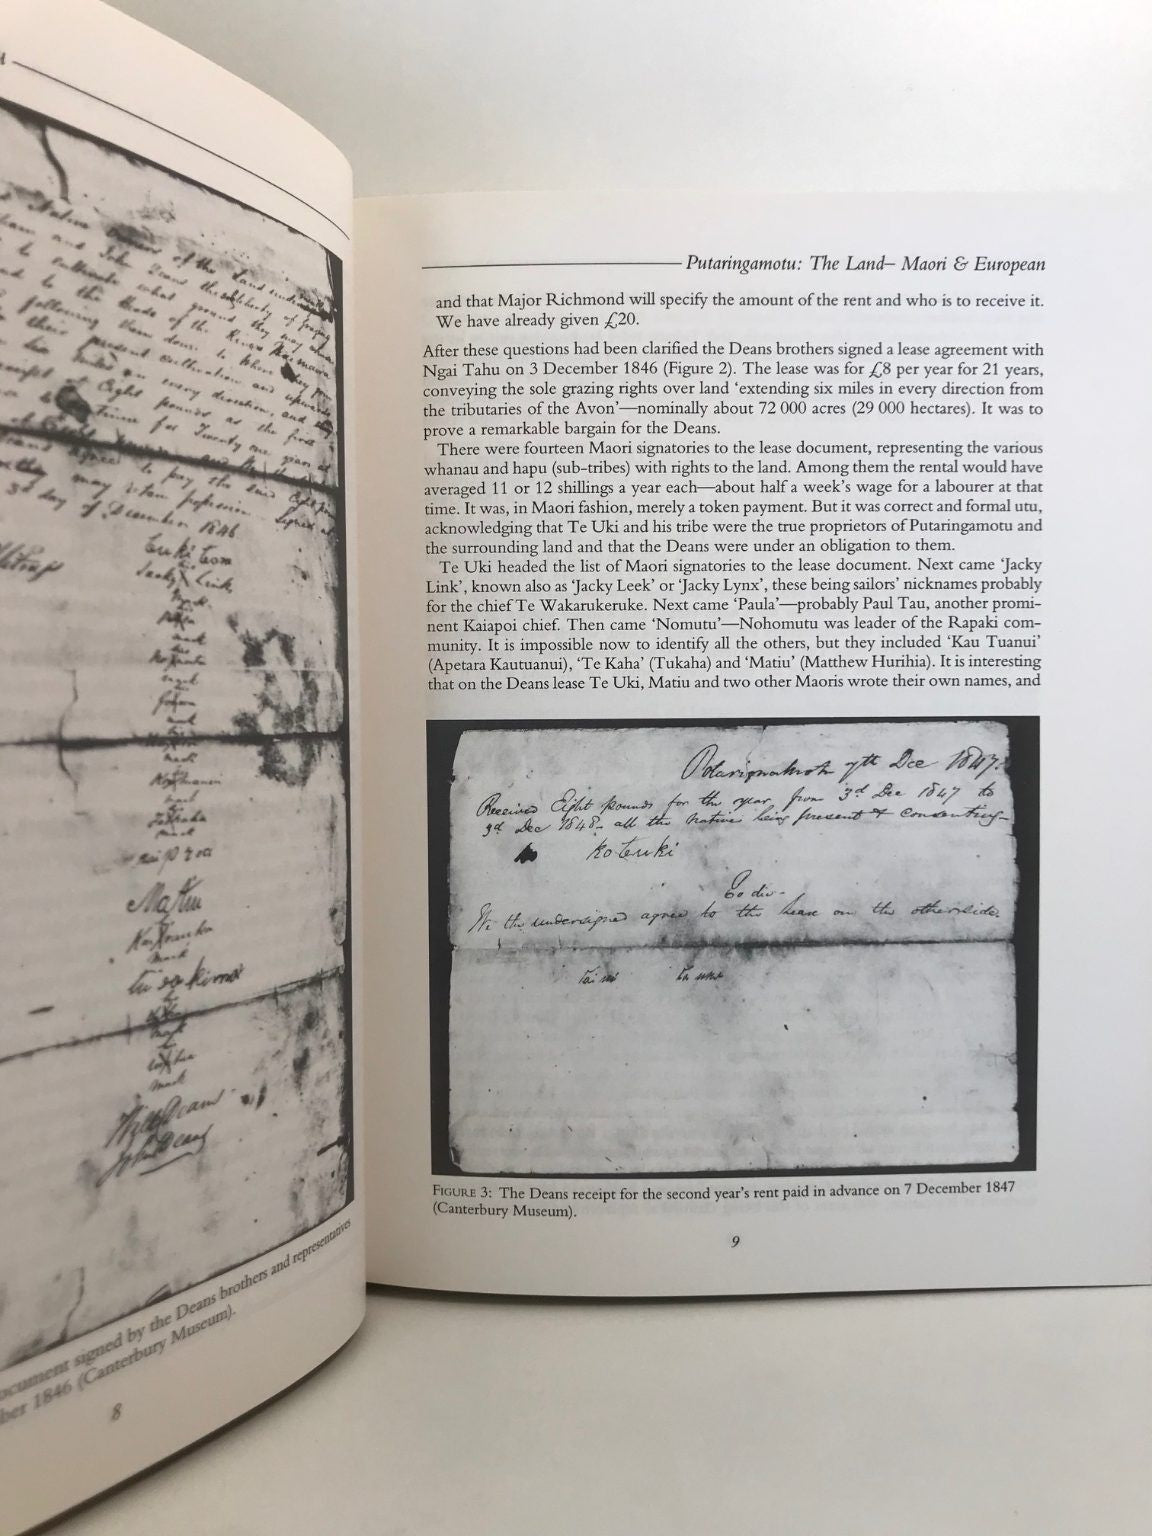 Native owners of the Land undermention
and John Deans the liberty of grazing
to cultivate what ground they may
to the heads of the River
following them down to where they
their present cultivation and upwards
six miles in every direction, and
receipt of Eight pounds as the first
time for Twenty one years at
agree to pay the said Eight poun
they may retain possession. Signed at
3rd day of December 1846
Jacky Link
mark
mark
mark
mark
mark
mark
Matiu
mark
mark
mark
Will Deans
John Deans
ocument signed by the Deans brothers and representatives
ber 1846 (Canterbury Museum).
8
Putaringamotu: The Land– Maori & European
and that Major Richmond will specify the amount of the rent and who is to receive it.
We have already given £20.
After these questions had been clarified the Deans brothers signed a lease agreement with
Ngai Tahu on 3 December 1846 (Figure 2). The lease was for £8 per year for 21 years,
conveying the sole grazing rights over land ‘extending six miles in every direction from
the tributaries of the Avon’—nominally about 72 000 acres (29 000 hectares). It was to
prove a remarkable bargain for the Deans.
There were fourteen Maori signatories to the lease document, representing the various
whanau and hapu (sub-tribes) with rights to the land. Among them the rental would have
averaged 11 or 12 shillings a year each—about half a week’s wage for a labourer at that
time. It was, in Maori fashion, merely a token payment. But it was correct and formal utu,
acknowledging that Te Uki and his tribe were the true proprietors of Putaringamotu and
the surrounding land and that the Deans were under an obligation to them.
Te Uki headed the list of Maori signatories to the lease document. Next came ‘Jacky
Link’, known also as ‘Jacky Leek’ or ‘Jacky Lynx’, these being sailors’ nicknames probably
for the chief Te Wakarukeruke. Next came ‘Paula’—probably Paul Tau, another promi-
nent Kaiapoi chief. Then came ‘Nomutu’—Nohomutu was leader of the Rapaki com-
munity. It is impossible now to identify all the others, but they included ‘Kau Tuanui’
(Apetara Kautuanui), ‘Te Kaha’ (Tukaha) and ‘Matiu’ (Matthew Hurihia). It is interesting
that on the Deans lease Te Uki, Matiu and two other Maoris wrote their own names, and
Potaringamotu 7th Dec 1847.
Received Eight pounds for the year from 3d Dec 1847 to
3d Dec 1848. all the natives being present & consenting
ko teuki
We the undersigned agree to the Lease on the otherside.
FIGURE 3: The Deans receipt for the second year’s rent paid in advance on 7 December 1847
(Canterbury Museum).
9